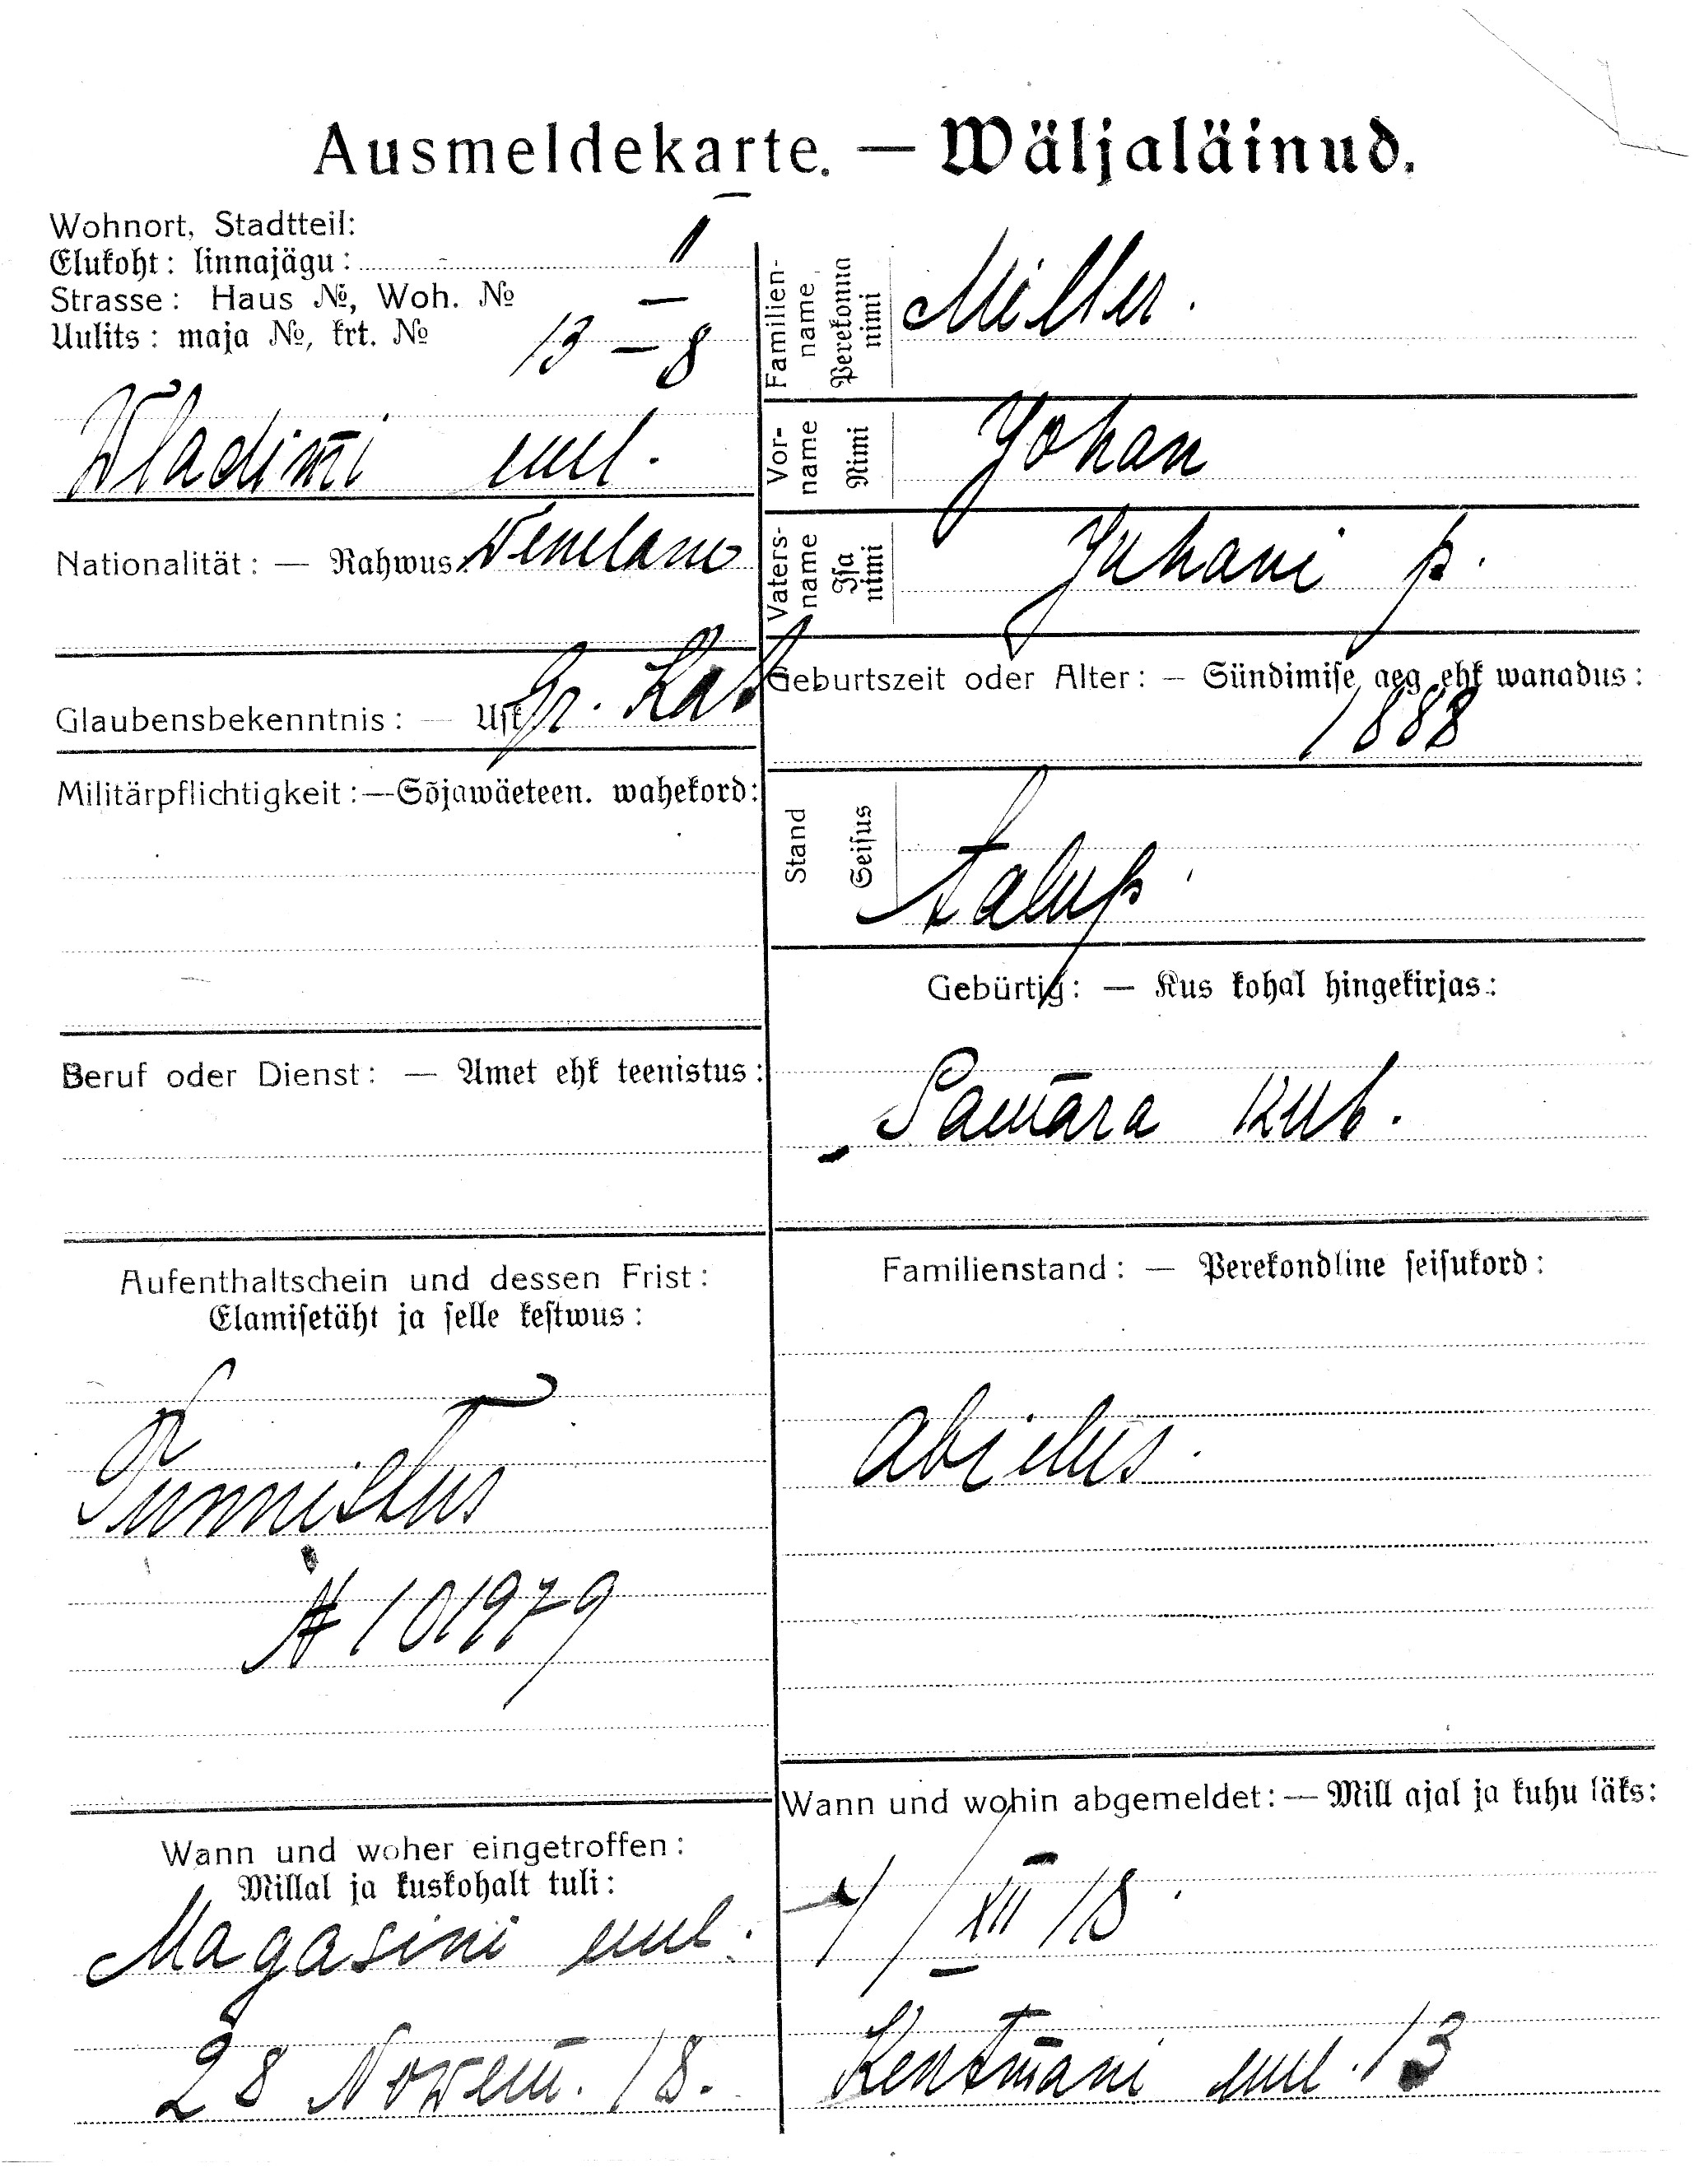 Ausmeldekarte. — Wäljaläinud.
Wohnort, Stadtteil:
Elukoht: linnajägu: II
Strasse: Haus №, Woh. №
Uulits: maja №, krt. № 13 – 8
Wladimiri uul.
Nationalität: — Rahwus: Wenelane
Glaubensbekenntnis: — Usk Gr. Kat
Militärpflichtigkeit:—Sõjawäeteen. wahekord:
Beruf oder Dienst: — Amet ehk teenistus:
Aufenthaltschein und dessen Frist:
Elamisetäht ja selle kestwus:
Tunnistus
№ 101979
Wann und woher eingetroffen:
Millal ja kuskohalt tuli:
Magasini uul.
28 Nowem. 18.
Familien-
name
Perekonna
nimi
Miller.
Vor-
name
Nimi
Johan
Vaters-
name
Isa
nimi
Juhani p.
Geburtszeit oder Alter: — Sündimise aeg ehk wanadus:
1888
Stand
Seisus
talup.
Gebürtig: — Kus kohal hingekirjas:
Samara kub.
Familienstand: — Perekondline seisukord:
abielus.
Wann und wohin abgemeldet: — Mill ajal ja kuhu läks:
4/XII 18.
Kentmani uul. 13